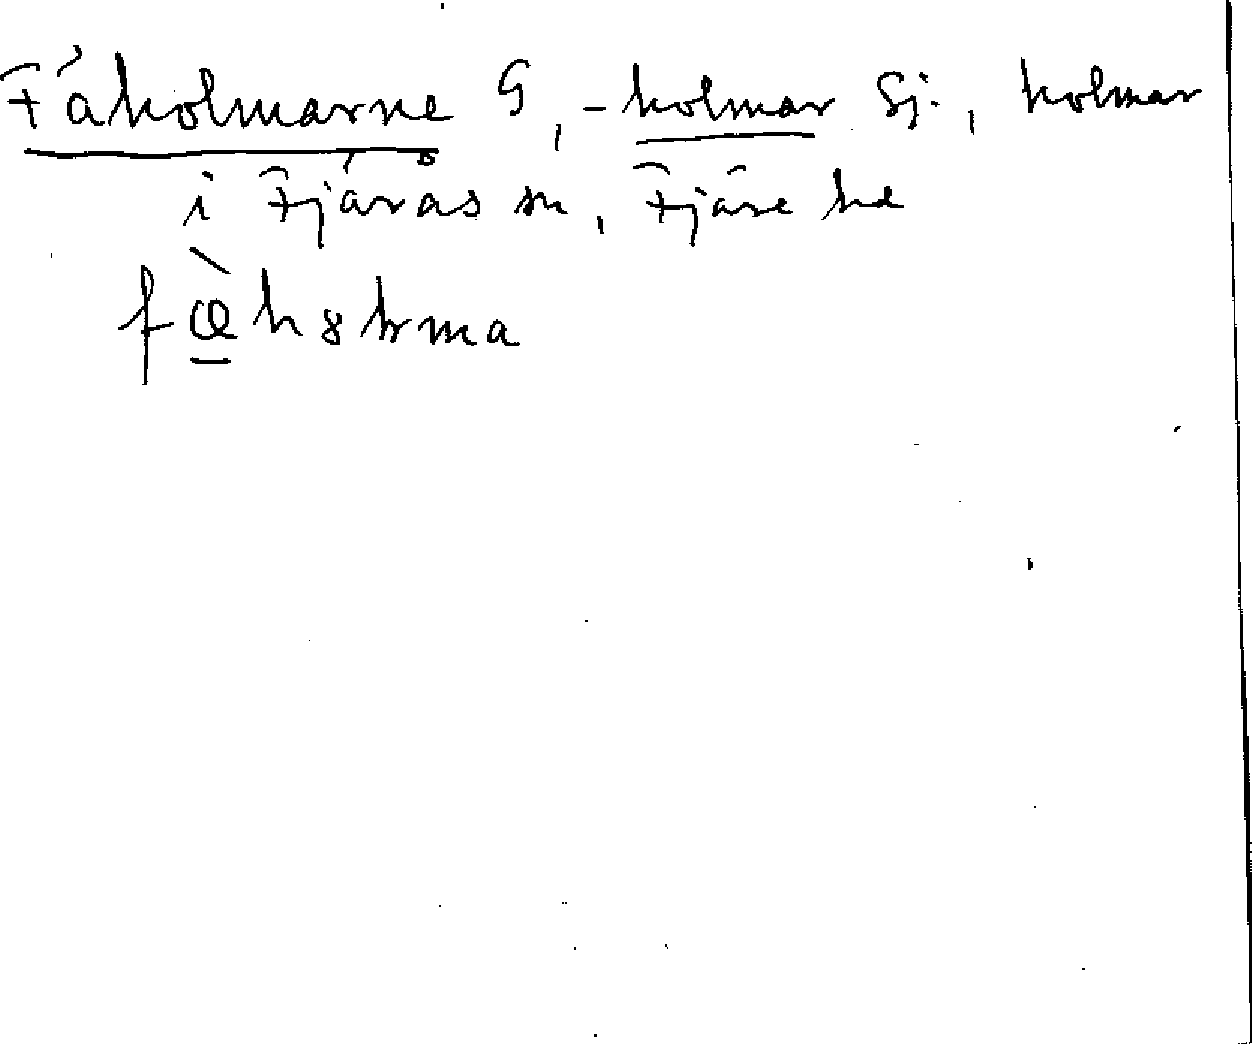 Fåholmarne G, -holmar Sj., holmar
i Fjärås sn, Fjäre hd